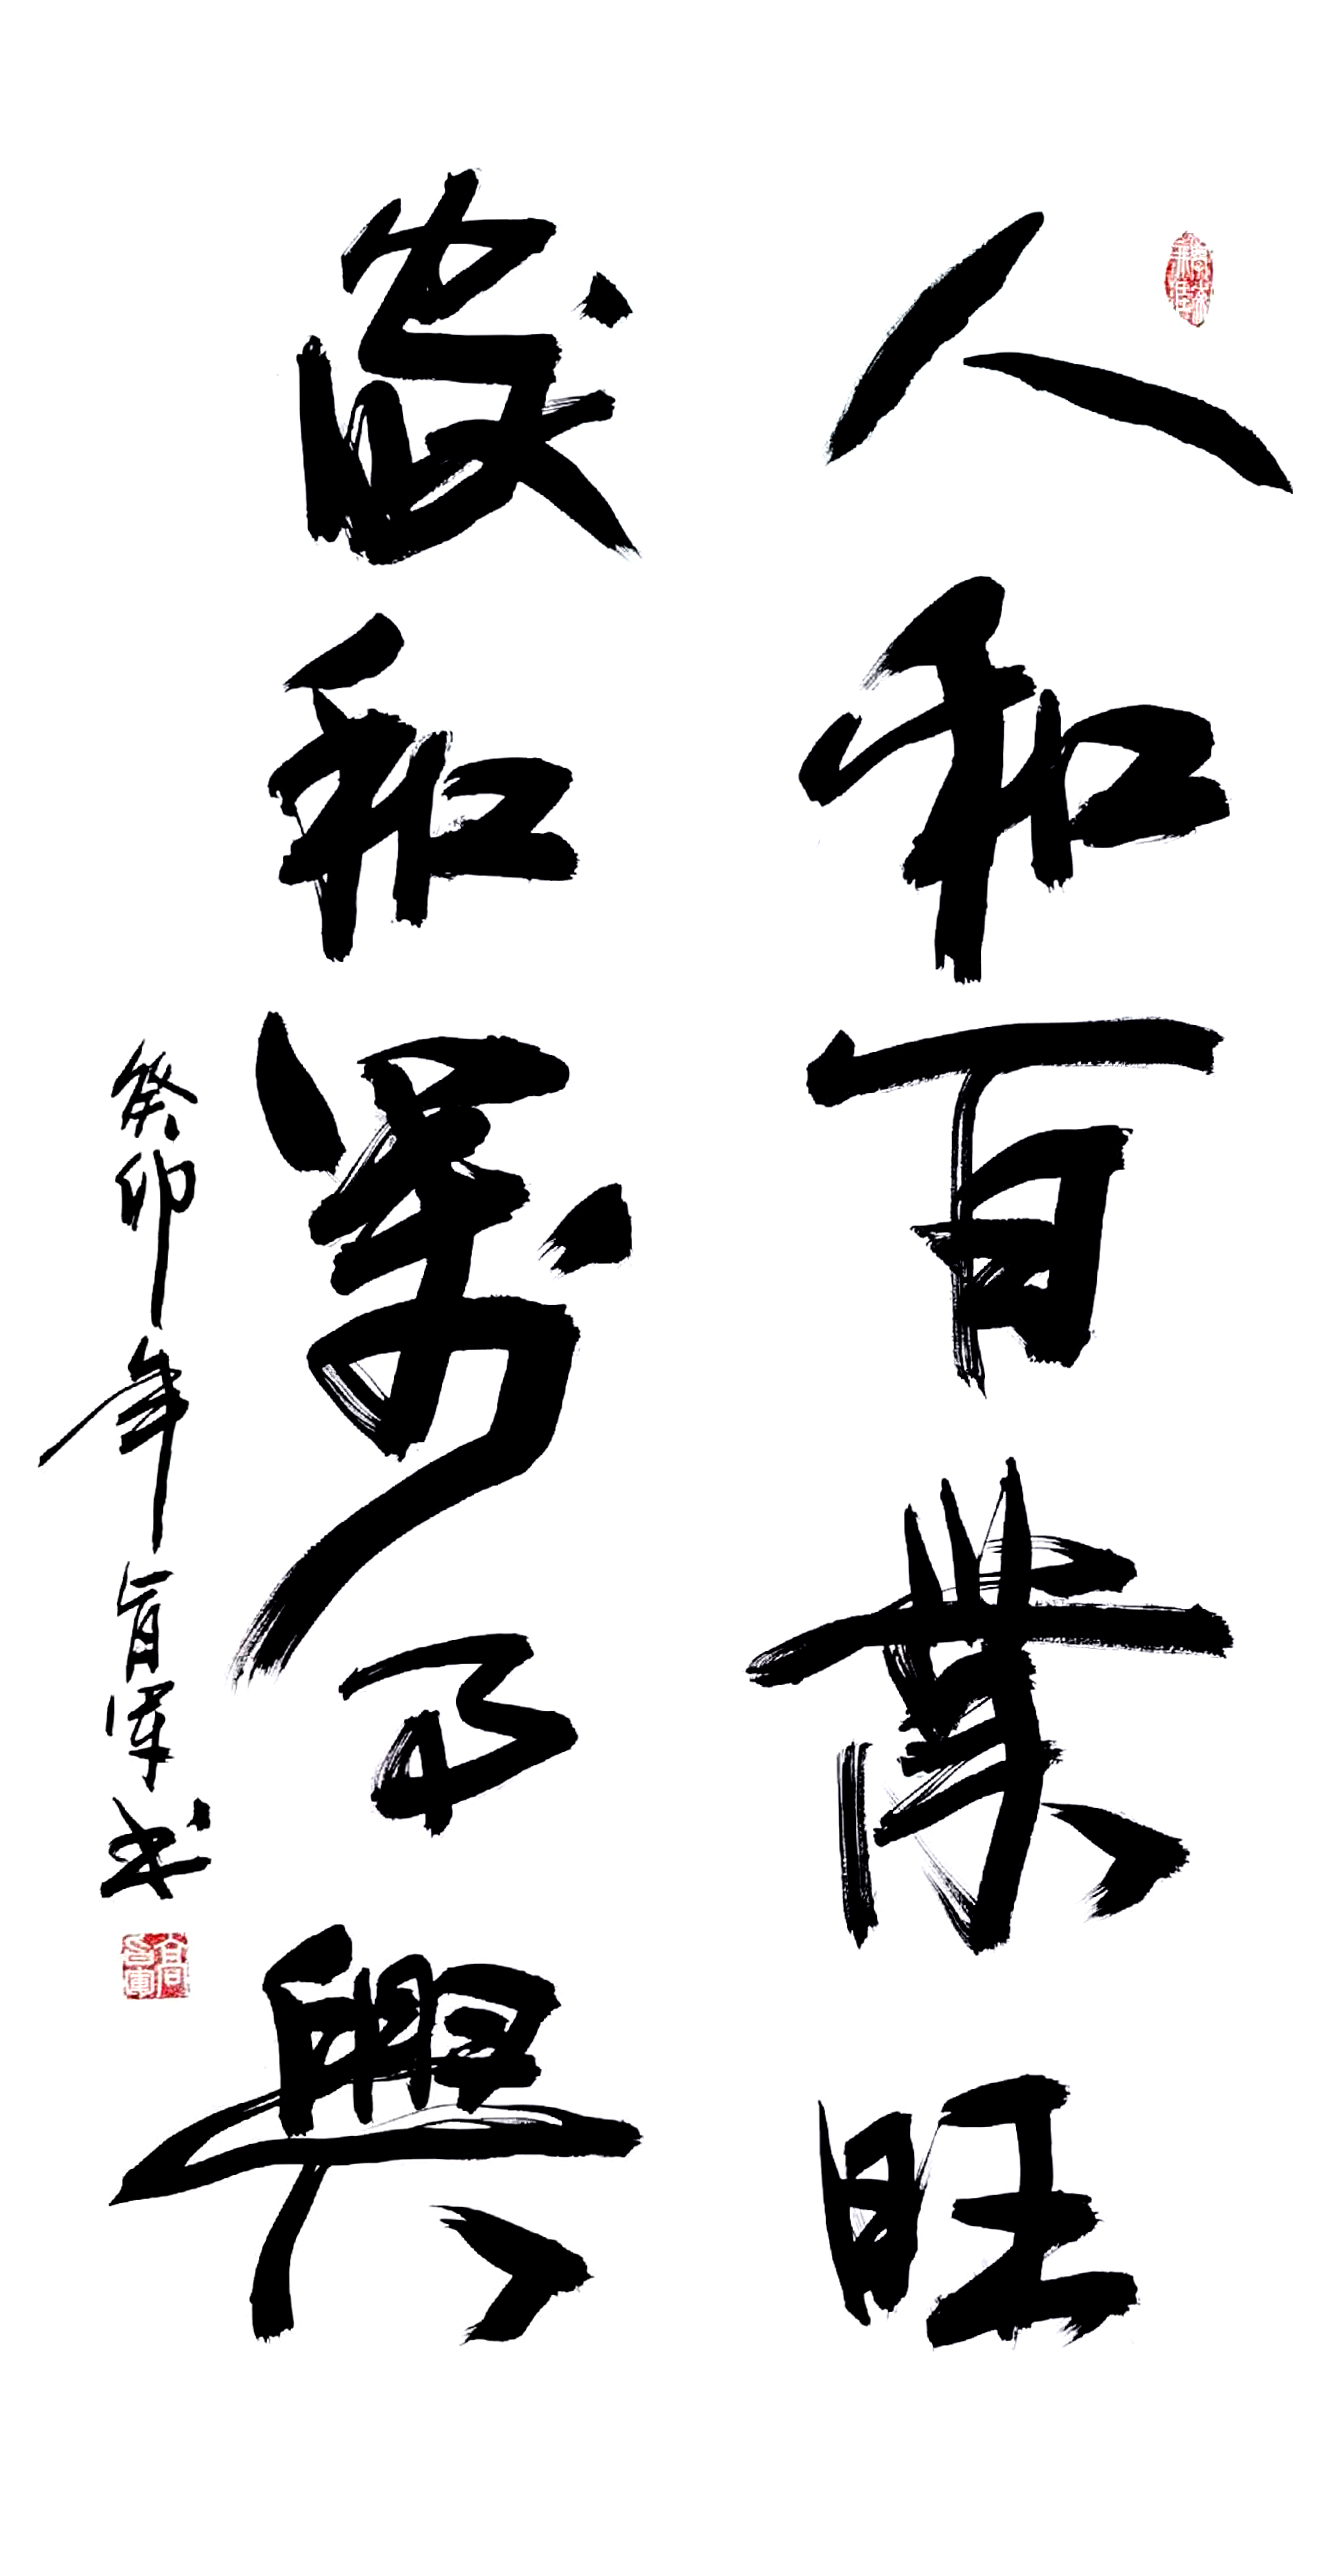 人和百業旺
家和萬事興
癸卯年軍书